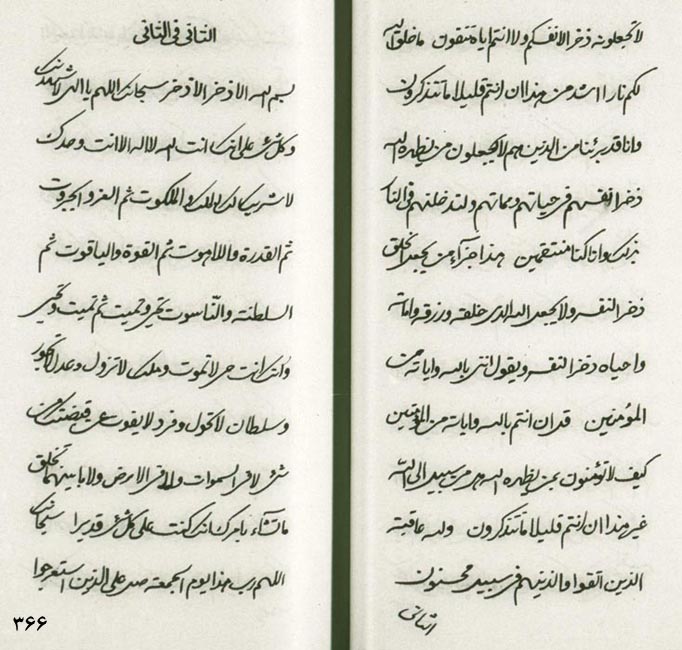 لا تجعلونه ذخر الانفسكم ولا انتم اياه تتقون ما خلق الله
لكم نارا اشد من هذا ان انتم قليلا ما تتذكرون
وانا قد برئنا من الذين هم لا يجعلون من يظهره الله
ذخر انفسهم في حياتهم ومماتهم ولندخلنهم في النار
بذلك وانا كنا منتقمين هذا جزاء من يجعل الخلق
ذخر النفسه ولا يجعل الله الذي خلقه ورزقه واماته
واحياه ذخر النفسه ويقول انني بالله واياته من
المؤمنين قل ان انتم بالله واياته من المؤمنين
كيف لا تؤمنون بمن يظهره الله هل من سبيل الى الله
غير هذا ان انتم قليلا ما تتذكرون ولله عاقبة
الذين اتقوا والذينهم في سبيله محسنون
الثاني
الثاني في الثاني
بسم الله الاذخر الاذخر سبحانك اللهم يا الهي لاشهدنك
وكل شيء على انك انت الله لا اله الا انت وحدك
لا شريك لك لك الملك والملكوت ثم العز والجبروت
ثم القدرة واللاهوت ثم القوة والياقوت ثم
السلطنة والناسوت تحيي وتميت ثم تميت وتحيي
وانك انت حي لا تموت وملك لا تزول وعدل لا تجور
وسلطان لا تحول وفرد لا يفوت عن قبضتك من
شيء لا في السموات ولا في الارض ولا ما بينهما تخلق
ما تشاء بامرك انك كنت على كل شيء قديرا سبحانك
اللهم رب هذا يوم الجمعة صل على الذين استعرجوا
۳۶۶